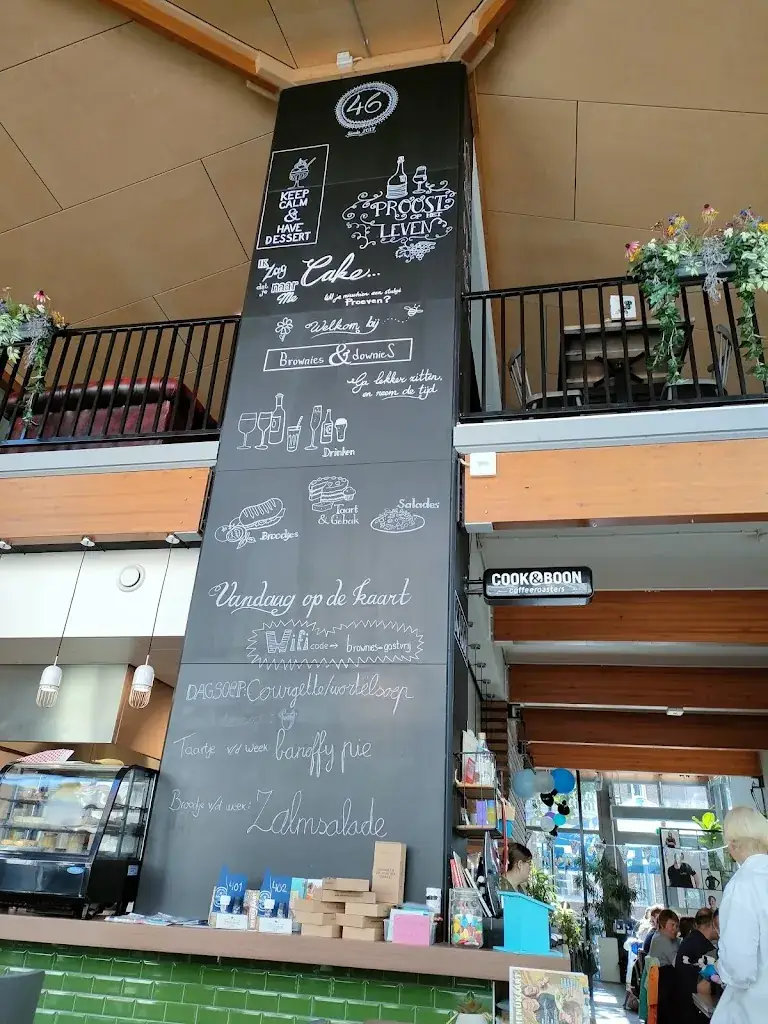 46
Sinds 2017
KEEP
CALM
&
HAVE
DESSERT
PROOST
OP HET
LEVEN
IK
Zag
dat je
naar
Me
Cake...
Wil je misschien een stukje
Proeven?
Welkom bij
Brownies & downieS
Ga lekker zitten,
en neem de tijd
Drinken
Broodjes
Taart
& Gebak
Salades
Vandaag op de kaart
Wifi code → brownies=gastvrij
COOK&BOON
coffeeroasters
DAGSOEP: Courgette/wortelsoep
Taartje v/d week banoffy pie
Broodje v/d week: Zalmsalade
401
402